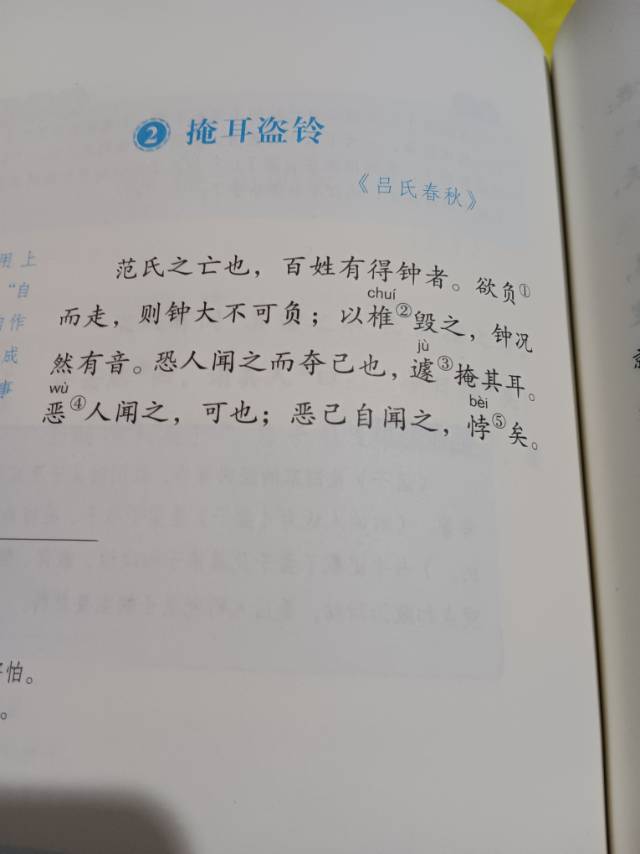 2 掩耳盗铃
《吕氏春秋》
范氏之亡也，百姓有得钟者。欲负①
chuí
而走，则钟大不可负；以椎②毁之，钟况
jù
然有音。恐人闻之而夺己也，遽③掩其耳。
wù bèi
恶④人闻之，可也；恶己自闻之，悖⑤矣。
用上
“自
作
成
事
怕。
。